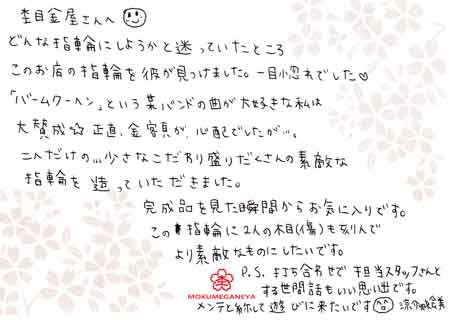 杢目金屋さんへ
どんな指輪にしようかと迷っていたところ
このお店の指輪を彼が見つけました。一目惚れでした♡
「バームクーヘン」という某バンドの曲が大好きな私は
大賛成☆ 正直、金額が、心配でしたが…。
二人だけの小さなこだわり盛りだくさんの素敵な
指輪を造っていただきました。
完成品を見た瞬間からお気に入りです。
この指輪に2人の木目(傷)も刻んで
より素敵なものにしたいです。
P.S. 打ち合わせで担当スタッフさんと
する世間話もいい思い出です。
メンテと称して遊びに来たいです
MOKUMEGANEYA